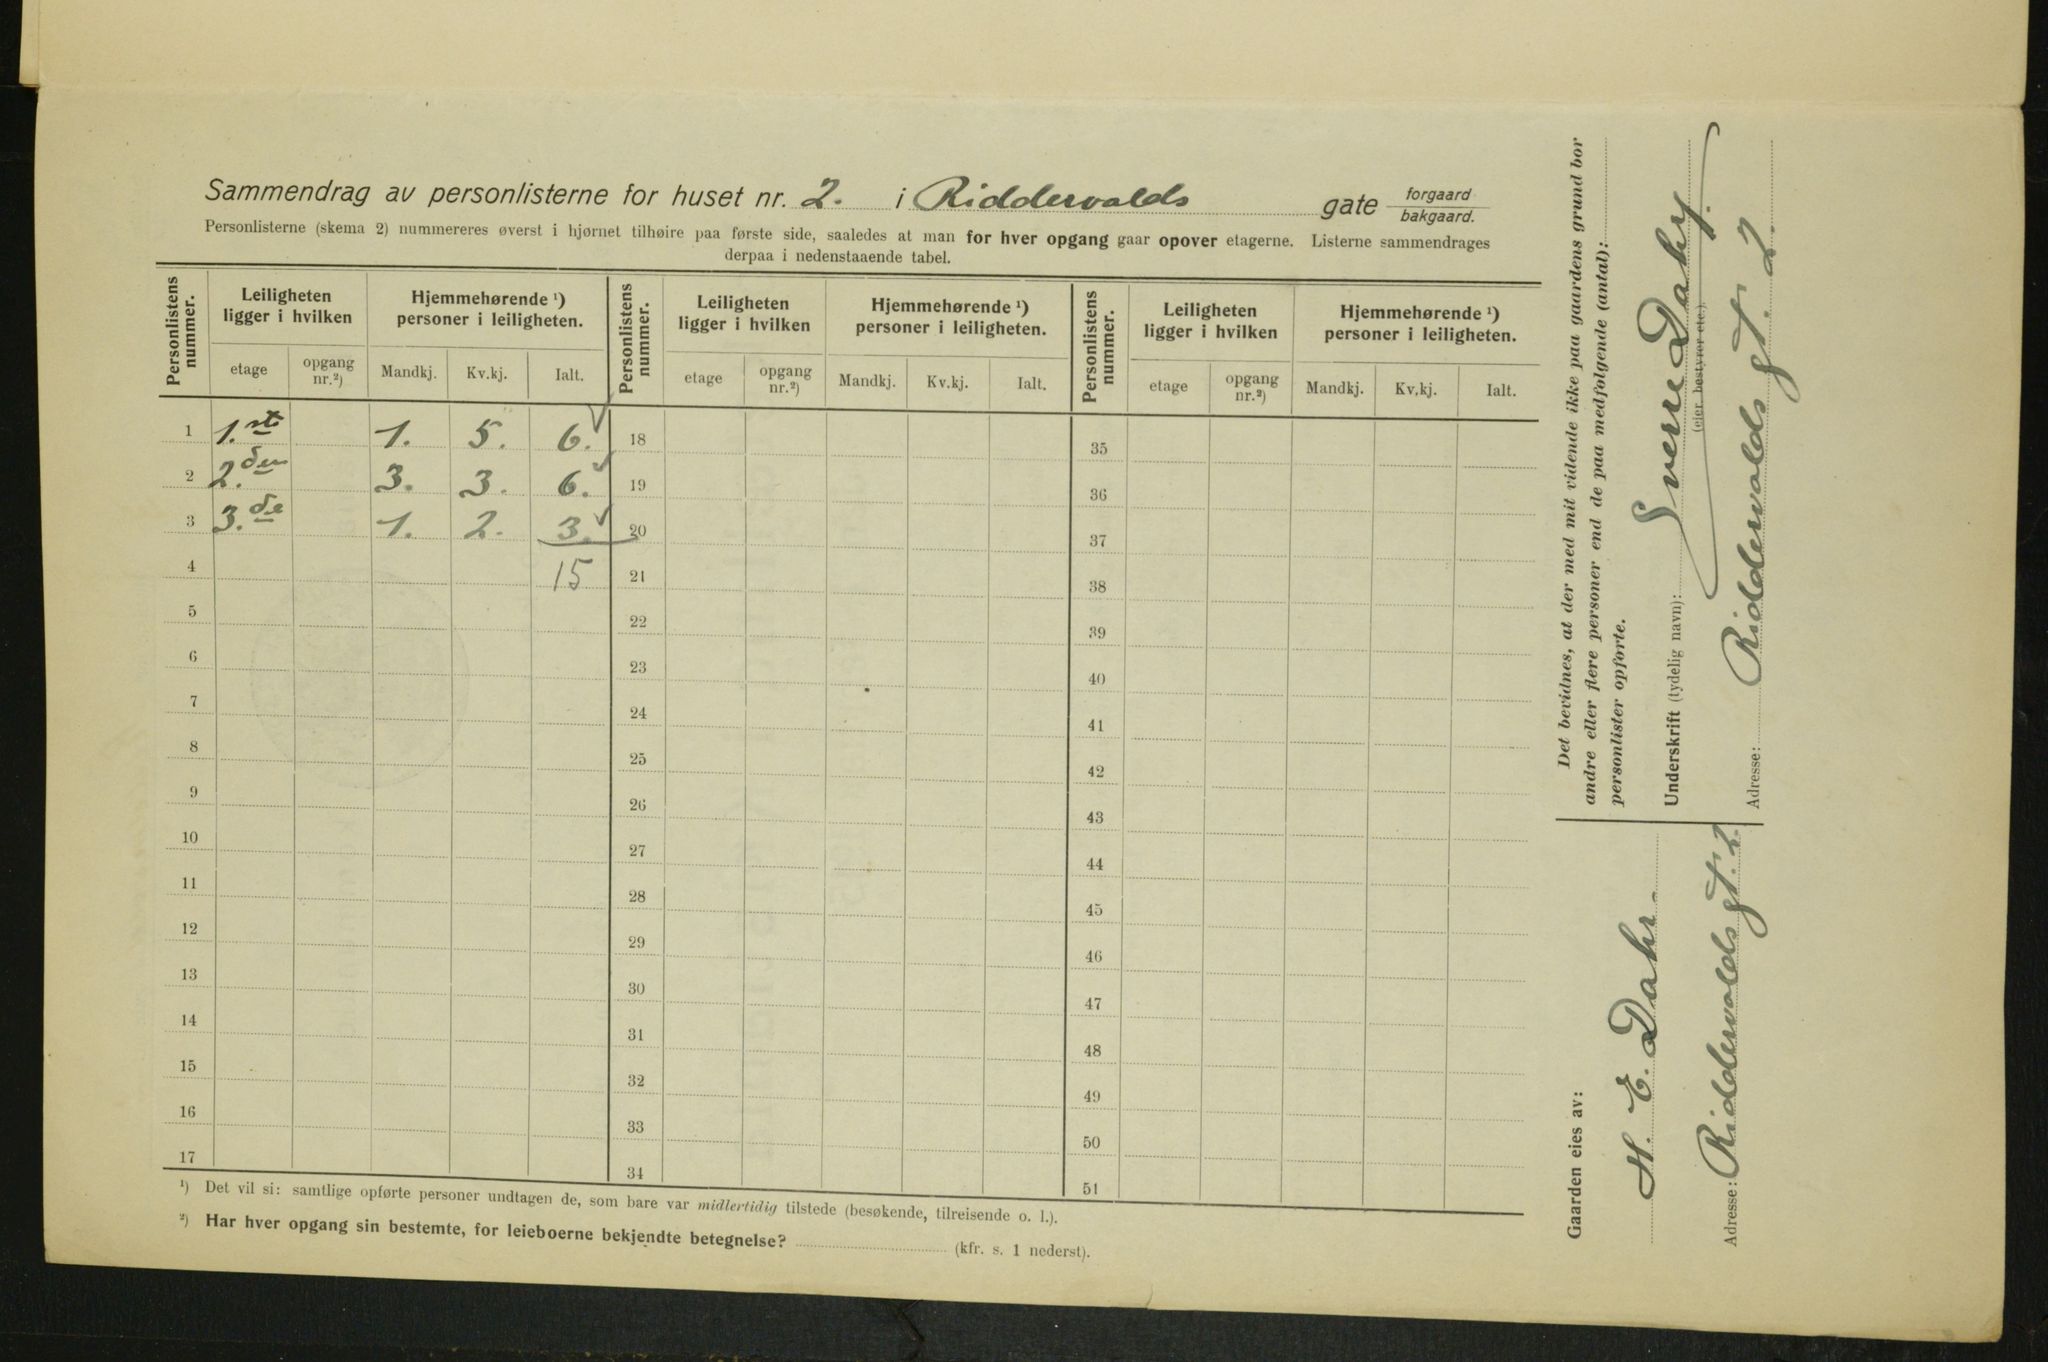 Sammendrag av personlisterne for huset nr. 2. i Riddervolds gate forgaard bakgaard.
Personlisterne (skema 2) nummereres øverst i hjørnet tilhøire paa første side, saaledes at man for hver opgang gaar opover etagerne. Listerne sammendrages
derpaa i nedenstaaende tabel.
Personlistens nummer. Leiligheten ligger i hvilken Hjemmehørende ¹) personer i leiligheten. Personlistens nummer. Leiligheten ligger i hvilken Hjemmehørende ¹) personer i leiligheten. Personlistens nummer. Leiligheten ligger i hvilken Hjemmehørende ¹) personer i leiligheten.
etage opgang nr.²) Mandkj. Kv.kj. Ialt. etage opgang nr.²) Mandkj. Kv.kj. Ialt. etage opgang nr.²) Mandkj. Kv.kj. Ialt.
1 1.ste 1. 5. 6. 18 35
2 2.den 3. 3. 6. 19 36
3 3.de 1. 2. 3. 20 37
4 15 21 38
5 22 39
6 23 40
7 24 41
8 25 42
9 26 43
10 27 44
11 28 45
12 29 46
13 30 47
14 31 48
15 32 49
16 33 50
17 34 51
¹) Det vil si: samtlige opførte personer undtagen de, som bare var midlertidig tilstede (besøkende, tilreisende o. l.).
²) Har hver opgang sin bestemte, for leieboerne bekjendte betegnelse? (kfr. s. 1 nederst).
Det bevidnes, at der med mit vidende ikke paa gaardens grund bor
andre eller flere personer end de paa medfølgende (antal):
personlister opførte.
Underskrift (tydelig navn): Sverre Dahr.
(eier, bestyrer etc.)
Adresse: Riddervolds gt. 2.
Gaarden eies av:
H. E. Dahr.
Adresse: Riddervolds gt. 2.